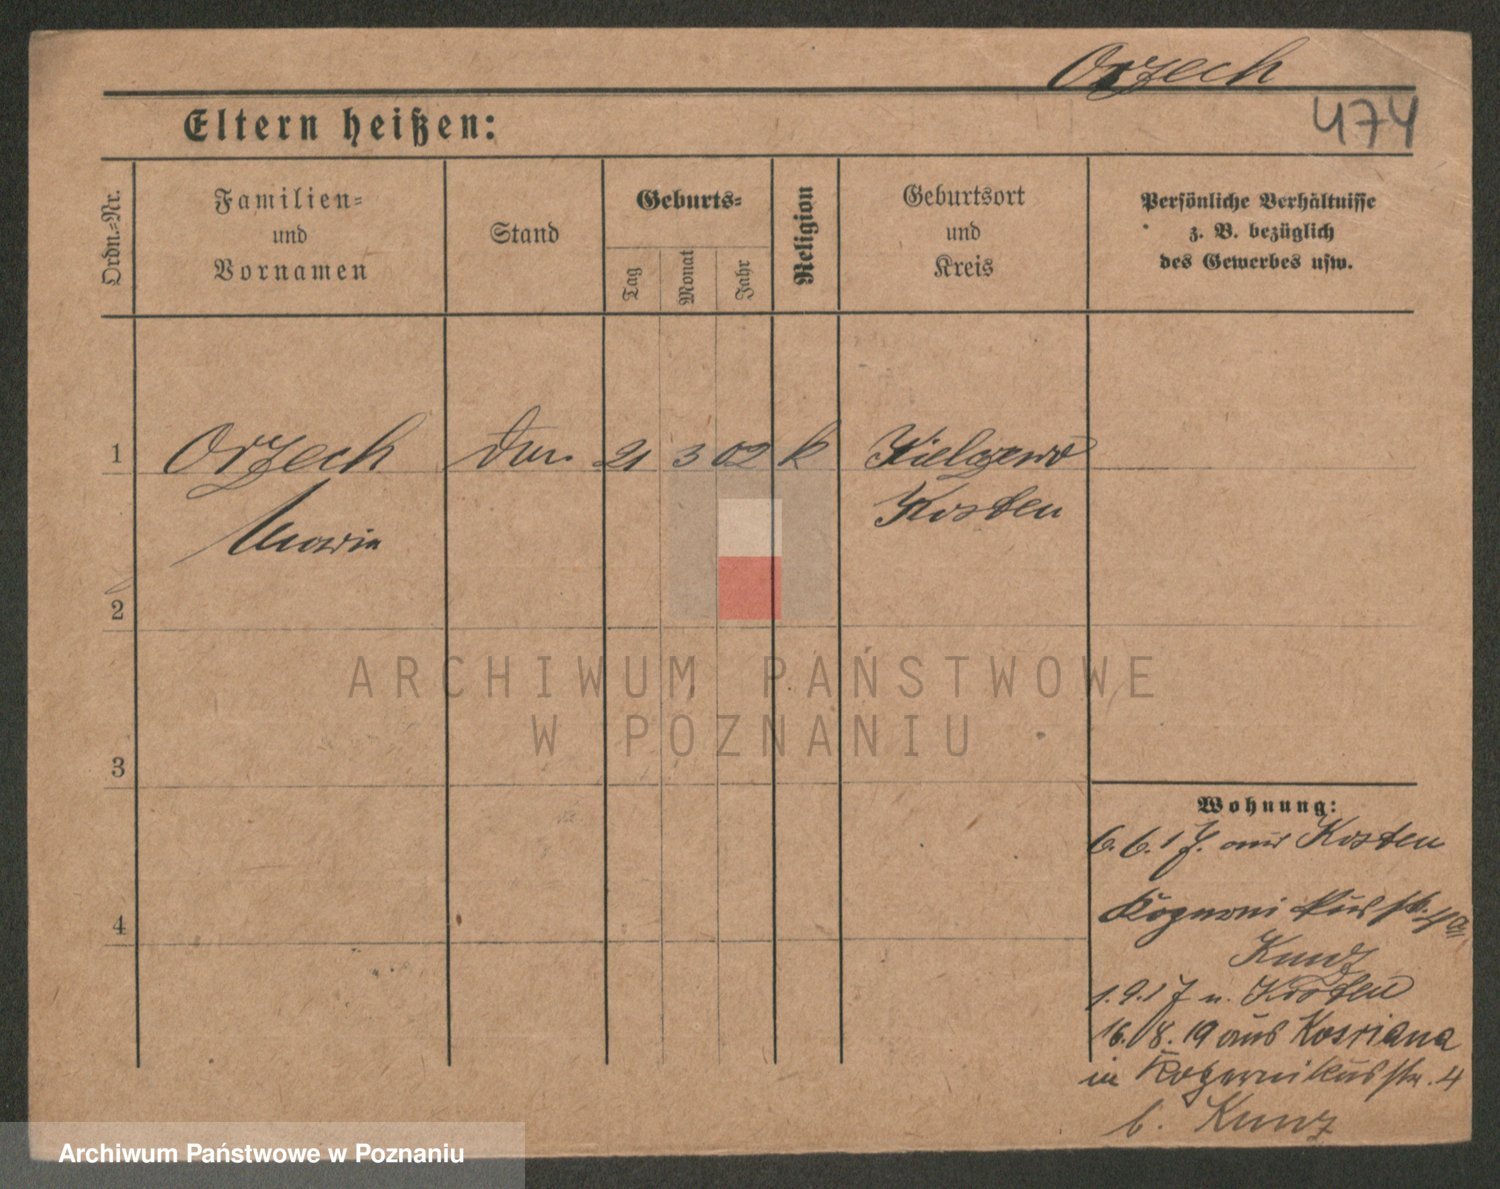 Orzech
474
Eltern heißen:
Ordn.-Nr.
Familien-
und
Vornamen
Stand
Geburts-
Tag
Monat
Jahr
Religion
Geburtsort
und
Kreis
Persönliche Verhältnisse
z. B. bezüglich
des Gewerbes usw.
1 Orzech 21 3 02 k
Kosten
Maria
2
3
4
ARCHIWUM PAŃSTWOWE
W POZNANIU
Wohnung:
6.6.17. aus Kosten
Kunz
1.9.17 n. Kosten
16.08.19 aus Kosciana
in Kopernikusstr. 4
b. Kunz
Archiwum Państwowe w Poznaniu